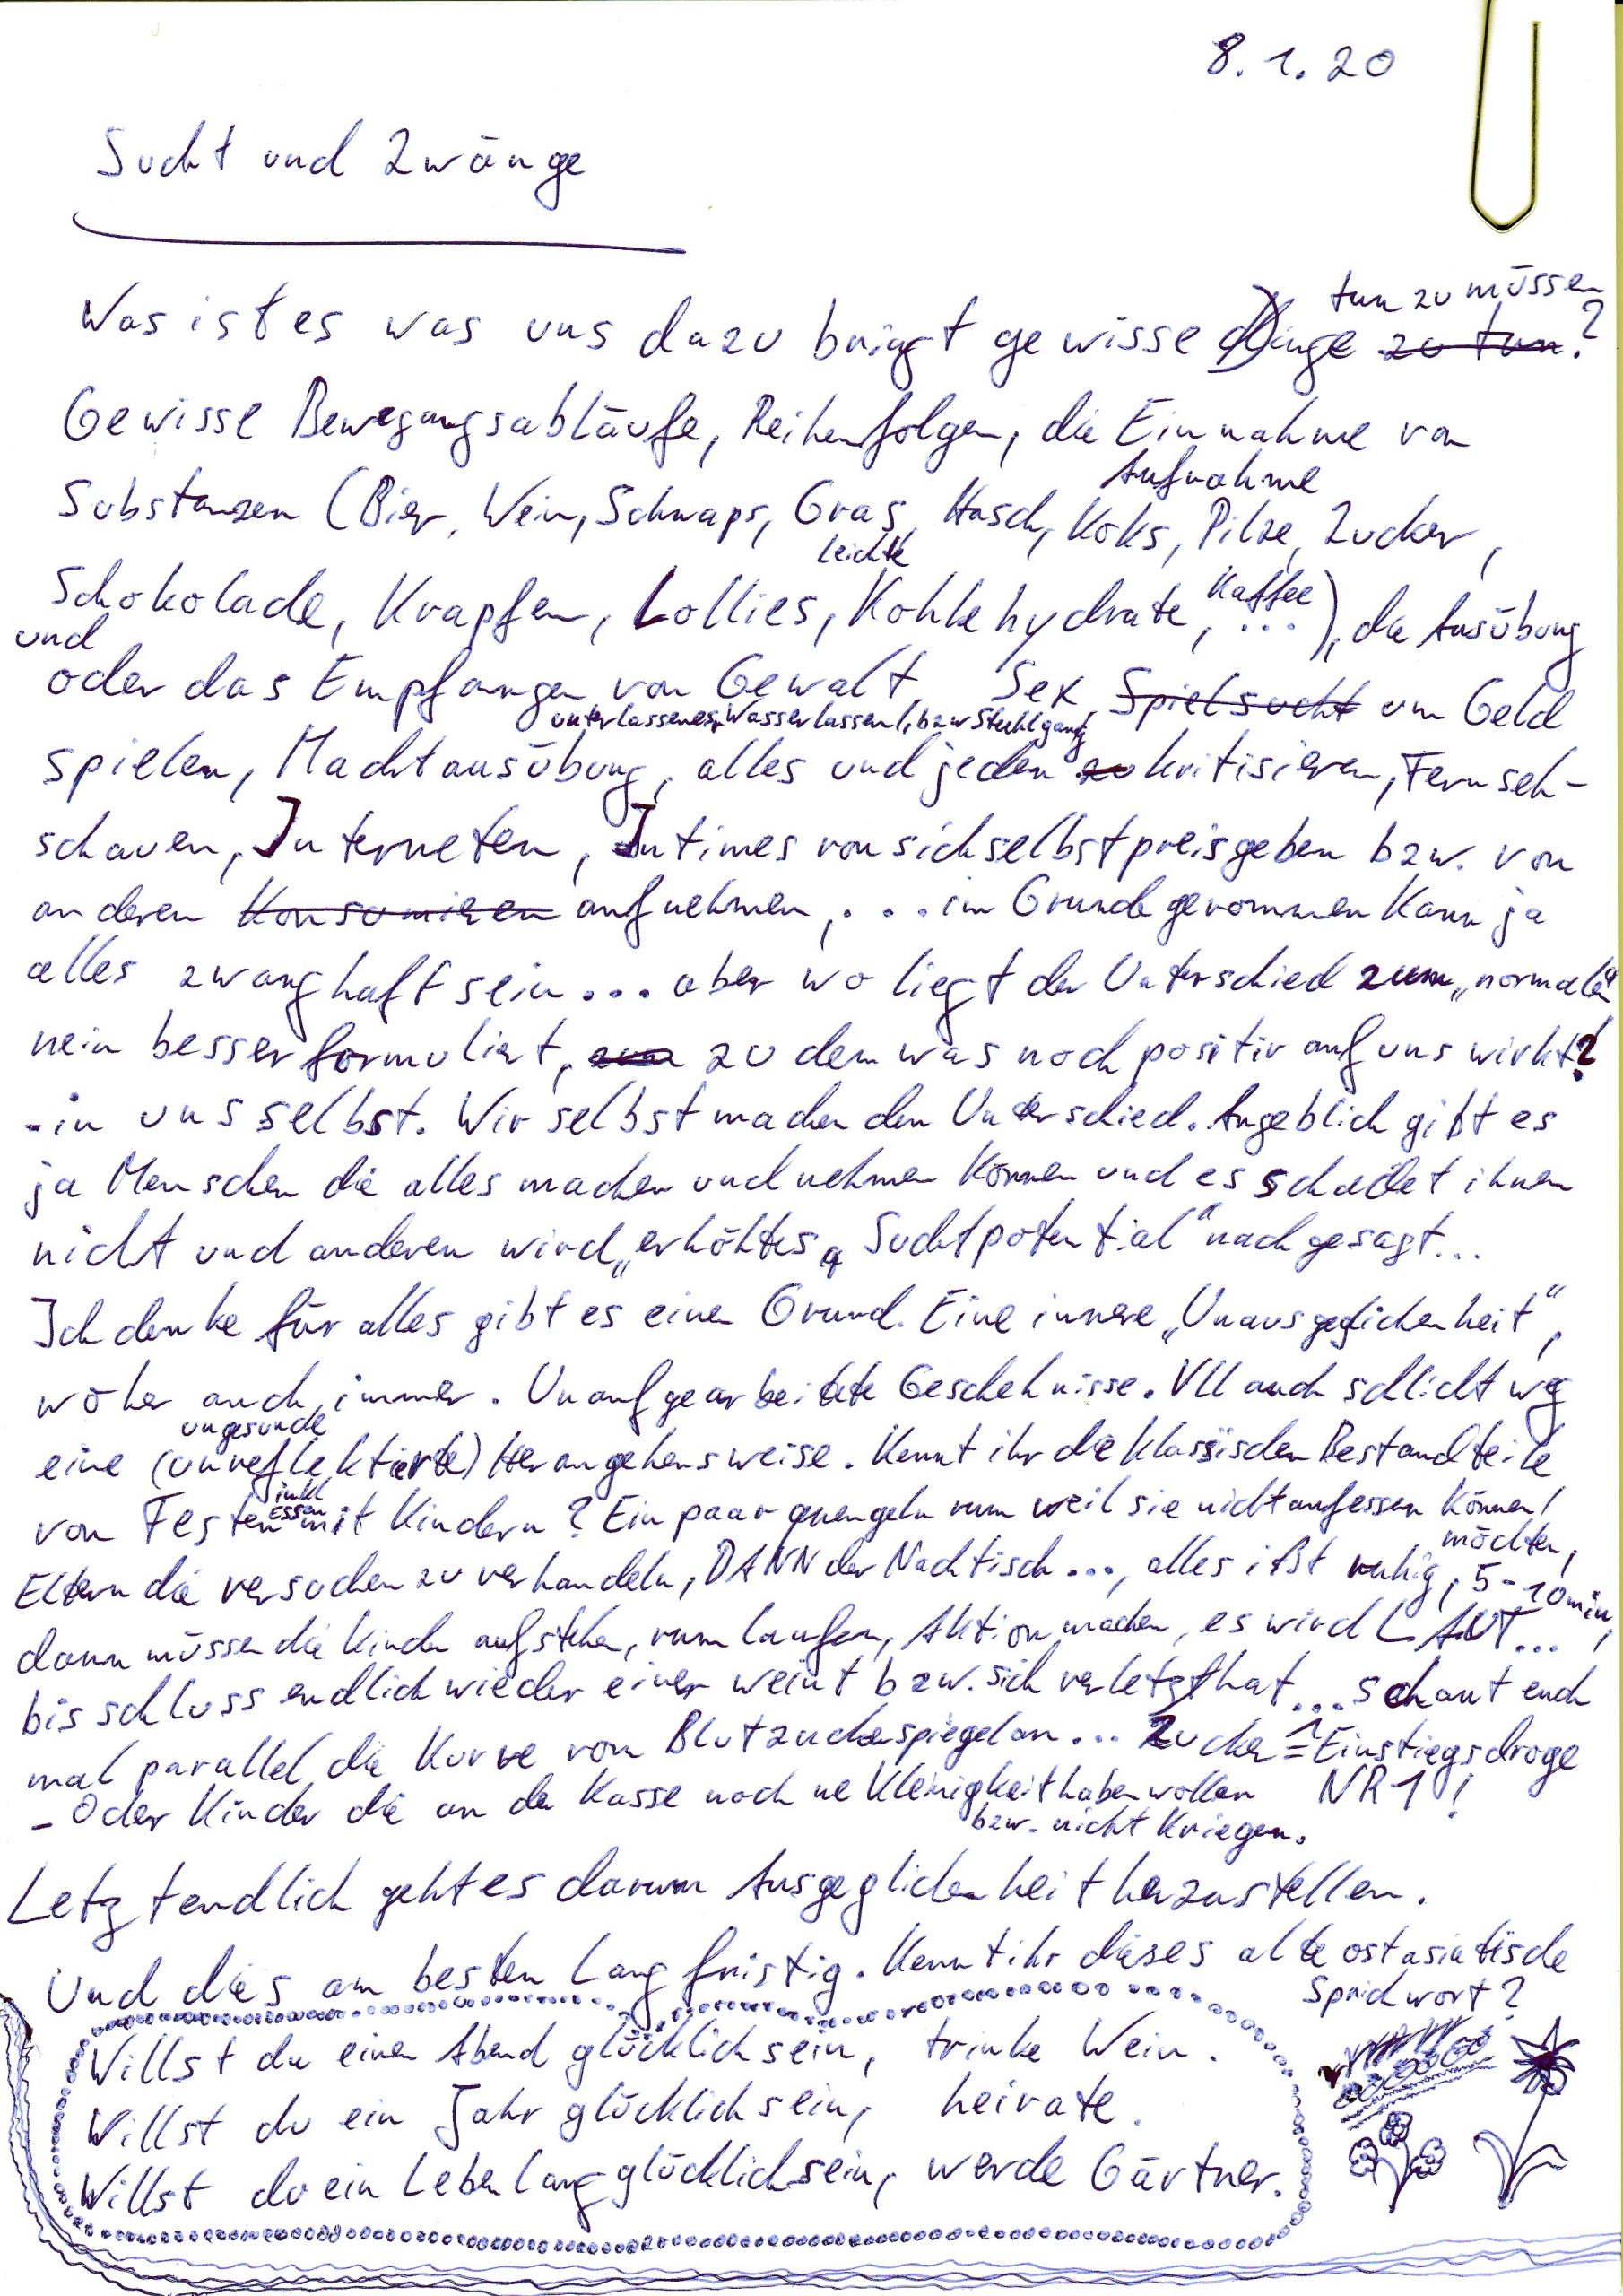 8. 1. 20
Sucht und Zwänge
tun zu müssen
Was ist es was uns dazu bringt gewisse Dinge zu tun?
Gewisse Bewegungsabläufe, Reihenfolgen, die Einnahme von
Aufnahme
Substanzen (Bier, Wein, Schnaps, Gras, Hasch, Koks, Pilze, Zucker,
leichte
Schokolade, Krapfen, Lollies, Kohlehydrate, Kaffee ...), die Ausübung
und
oder das Empfangen von Gewalt, Sex, Spielsucht um Geld
unterlassenes Wasserlassen (, bzw Stuhlgang
spielen, Machtausübung, alles und jeden zu kritisieren, Fernseh-
schauen, Interneten, Intimes von sich selbst preisgeben bzw. von
anderen Konsumieren aufnehmen, ... im Grunde genommen kann ja
alles zwanghaft sein... aber wo liegt der Unterschied zum „normalen"
nein besser formuliert, zum zu dem was noch positiv auf uns wirkt?
- in uns selbst. Wir selbst machen den Unterschied. Angeblich gibt es
ja Menschen die alles machen und nehmen können und es schadet ihnen
nicht und anderen wird „erhöhtes Suchtpotential" nachgesagt...
Ich denke für alles gibt es einen Grund. Eine innere „Unausgeglichenheit",
woher auch immer. Unaufgearbeitete Geschehnisse. Vll auch schlicht weg
ungesunde
eine (unreflektierte) Herangehensweise. Kennt ihr die klassischen Bestandteile
inkl Essen
von Festen mit Kindern? Ein paar quengeln rum weil sie nicht aufessen können/
möchten,
Eltern die versuchen zu verhandeln, DANN der Nachtisch..., alles ißt ruhig, 5-10min,
dann müssen die Kinder aufstehen, rumlaufen, Aktion machen, es wird LAUT...
bis schlussendlich wieder einer weint bzw. sich verletzt hat... schaut euch
mal parallel die Kurve vom Blutzuckerspiegel an... Zucker ≙ Einstiegsdroge
NR 1!
- Oder Kinder die an der Kasse noch ne Kleinigkeit haben wollen
bzw. nicht kriegen.
Letztendlich geht es darum Ausgeglichenheit herzustellen.
Und dies am besten langfristig. Kennt ihr dieses alte ostasiatische
Sprichwort?
Willst du einen Abend glücklich sein, trinke Wein.
Willst du ein Jahr glücklich sein, heirate.
Willst du ein Leben lang glücklich sein, werde Gärtner.